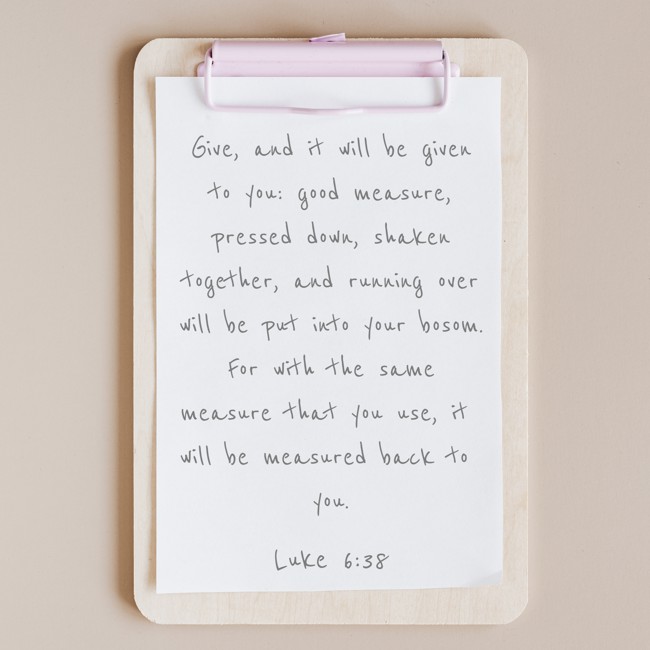 Give, and it will be given
to you: good measure,
pressed down, shaken
together, and running over
will be put into your bosom.
For with the same
measure that you use, it
will be measured back to
you.
Luke 6:38